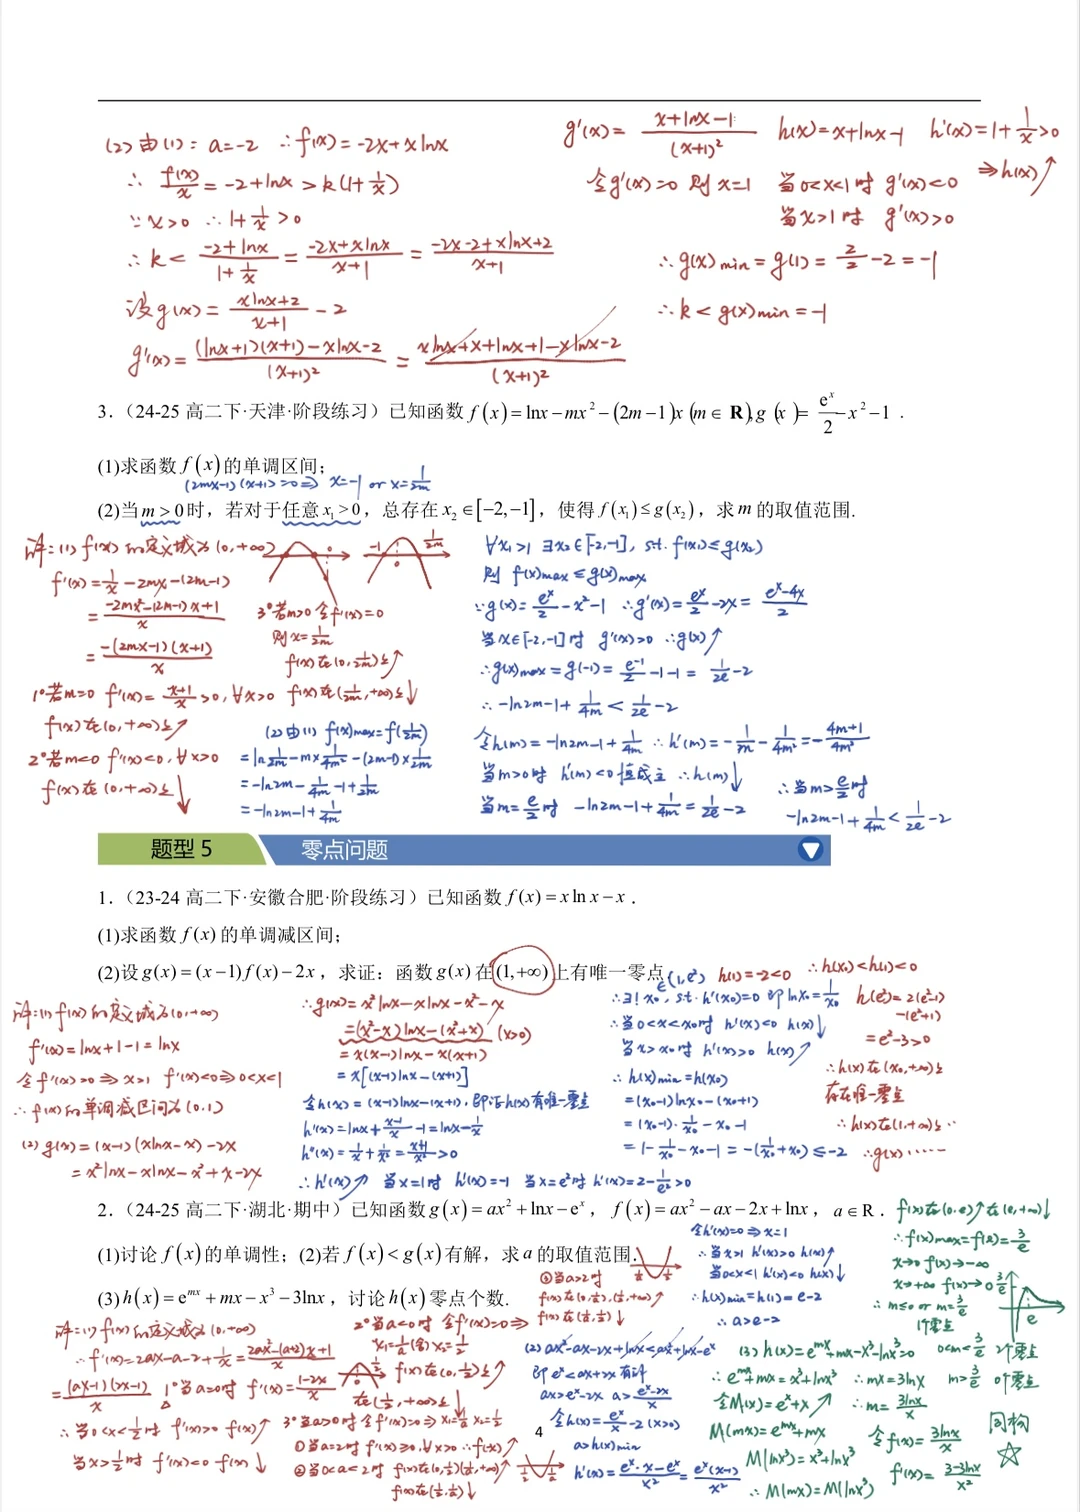 (2) 由(1): a=-2 ∴f(x)=-2x+xlnx
∴ f(x)/x = -2+lnx > k(1+1/x)
∵x>0 ∴1+1/x >0
∴k< (-2+lnx)/(1+1/x) = (-2x+xlnx)/(x+1) = (-2x-2+xlnx+2)/(x+1)
设g(x)= (xlnx+2)/(x+1) -2
g'(x)= ((lnx+1)(x+1)-xlnx-2)/(x+1)² = (xlnx+x+lnx+1-xlnx-2)/(x+1)²
g'(x)= (x+lnx-1)/(x+1)² h(x)=x+lnx-1 h'(x)=1+1/x>0
⇒h(x)↗
令g'(x)=0 则x=1 当0<x<1时 g'(x)<0
当x>1时 g'(x)>0
∴g(x)min=g(1)= 2/2 -2=-1
∴k<g(x)min=-1
3.（24-25 高二下·天津·阶段练习）已知函数 f(x)=lnx-mx²-(2m-1)x (m∈R), g(x)= eˣ/2 -x²-1 .
(1)求函数 f(x)的单调区间;
(2mx-1)(x+1)=0⇒ x=-1 or x=1/2m
(2)当 m>0 时，若对于任意 x₁>0，总存在 x₂∈[-2,-1]，使得 f(x₁)≤g(x₂)，求 m 的取值范围.
解:(1) f(x)的定义域为(0,+∞)
f'(x)=1/x -2mx-(2m-1)
= (-2mx²-(2m-1)x+1)/x
= -(2mx-1)(x+1)/x
1°若m=0 f'(x)= (x+1)/x >0,∀x>0
f(x)在(0,+∞)上↗
2°若m<0 f'(x)<0,∀x>0
f(x)在(0,+∞)上↘
0 -1 0 1/2m
3°若m>0 令f'(x)=0
则x=1/2m
f(x)在(0,1/2m)上↗
f(x)在(1/2m,+∞)上↓
(2)由(1) f(x)max=f(1/2m)
=ln 1/2m -m×1/4m² -(2m-1)×1/2m
=-ln2m- 1/4m -1+ 1/2m
=-ln2m-1+ 1/4m
∀x₁>1 ∃x₂∈[-2,-1], s.t. f(x₁)≤g(x₂)
则 f(x)max≤g(x)max
∵g(x)= eˣ/2 -x²-1 ∴g'(x)= eˣ/2 -2x= (eˣ-4x)/2
当x∈[-2,-1]时 g'(x)>0 ∴g(x)↗
∴g(x)max=g(-1)= e⁻¹/2 -1-1= 1/2e -2
∴-ln2m-1+ 1/4m < 1/2e -2
令h(m)=-ln2m-1+ 1/4m ∴h'(m)=- 1/m - 1/4m² =- (4m+1)/4m²
当m>0时 h'(m)<0恒成立 ∴h(m)↓
当m= e/2 时 -ln2m-1+ 1/4m = 1/2e -2
∴当m> e/2 时
-ln2m-1+ 1/4m < 1/2e -2
题型 5 零点问题
1.（23-24 高二下·安徽合肥·阶段练习）已知函数 f(x)=xlnx-x .
(1)求函数 f(x)的单调减区间;
(2)设 g(x)=(x-1)f(x)-2x，求证：函数 g(x) 在(1,+∞)上有唯一零点
解:(1) f(x)的定义域为(0,+∞)
f'(x)=lnx+1-1=lnx
令f'(x)>0⇒x>1 f'(x)<0⇒0<x<1
∴f(x)的单调减区间为(0,1)
(2) g(x)=(x-1)(xlnx-x)-2x
=x²lnx-xlnx-x²+x-2x
∴g(x)=x²lnx-xlnx-x²-x
=(x²-x)lnx-(x²+x) (x>0)
=x(x-1)lnx-x(x+1)
=x[(x-1)lnx-(x+1)]
令h(x)=(x-1)lnx-(x+1), 即证h(x)有唯一零点
h'(x)=lnx+ (x-1)/x -1=lnx- 1/x
h''(x)= 1/x + 1/x² = (x+1)/x² >0
∴h'(x)↗ 当x=1时 h'(x)=-1 当x=e²时 h'(x)=2- 1/e² >0
∈(1,e²)
∴∃! x₀, s.t. h'(x₀)=0 即lnx₀= 1/x₀
∴当0<x<x₀时 h'(x)<0 h(x)↓
当x>x₀时 h'(x)>0 h(x)↗
∴h(x)min=h(x₀)
=(x₀-1)lnx₀-(x₀+1)
=(x₀-1)· 1/x₀ -x₀-1
=1- 1/x₀ -x₀-1=-( 1/x₀ +x₀)≤-2
h(1)=-2<0 ∴h(x₀)<h(1)<0
h(e²)=2(e²-1)
-(e²+1)
=e²-3>0
∴h(x)在(x₀,+∞)上
存在唯一零点
∴h(x)在(1,+∞)上…
∴g(x)……
2.（24-25 高二下·湖北·期中）已知函数 g(x)=ax²+lnx-eˣ，f(x)=ax²-ax-2x+lnx，a∈R .
(1)讨论 f(x)的单调性; (2)若 f(x)<g(x)有解，求 a 的取值范围.
(3) h(x)=eᵐˣ+mx-x³-3lnx，讨论 h(x)零点个数.
解:(1) f(x)的定义域为(0,+∞)
∴f'(x)=2ax-a-2+ 1/x = (2ax²-(a+2)x+1)/x
= (ax-1)(2x-1)/x 1°当a=0时 f'(x)= (1-2x)/x
∴当0<x<1/2时 f'(x)>0 f(x)↗
当x>1/2时 f'(x)<0 f(x)↓
2°当a<0时 令f'(x)=0⇒
x₁=1/a(舍) x₂=1/2
f(x)在(0,1/2)上↗
在(1/2,+∞)上↓
3°当a>0时 令f'(x)=0⇒x₁=1/a x₂=1/2
①当a=2时 f'(x)≥0,∀x>0 ∴f(x)↗
②当0<a<2时 f(x)在(0,1/2)(1/a,+∞)↗
f(x)在(1/2,1/a)↓
③当a>2时
f(x)在(0,1/a),(1/2,+∞)↗
f(x)在(1/a,1/2)↓
(2) ax²-ax-2x+lnx<ax²+lnx-eˣ
即eˣ<ax+2x有解
ax>eˣ-2x a> (eˣ-2x)/x
令h(x)= eˣ/x -2 (x>0)
a>h(x)min
h'(x)= (eˣ·x-eˣ)/x² = eˣ(x-1)/x²
令h'(x)=0⇒x=1
∴当x>1 h'(x)>0 h(x)↗
当0<x<1 h'(x)<0 h(x)↓
∴h(x)min=h(1)=e-2
∴a>e-2
(3) h(x)=eᵐˣ+mx-x³-lnx³=0
∴eᵐˣ+mx=x³+lnx³ ∴mx=3lnx
令M(x)=eˣ+x↗ ∴m= 3lnx/x
M(mx)=eᵐˣ+mx
M(lnx³)=x³+lnx³
∴M(mx)=M(lnx³)
令f(x)= 3lnx/x
f'(x)= (3-3lnx)/x²
f(x)在(0,e)↗在(e,+∞)↓
∴f(x)max=f(e)= 3/e
x→0 f(x)→-∞
x→+∞ f(x)→0
3/e e
∴m≤0 or m= 3/e
1个零点
0<m< 3/e 2个零点
m> 3/e 0个零点
同构
4